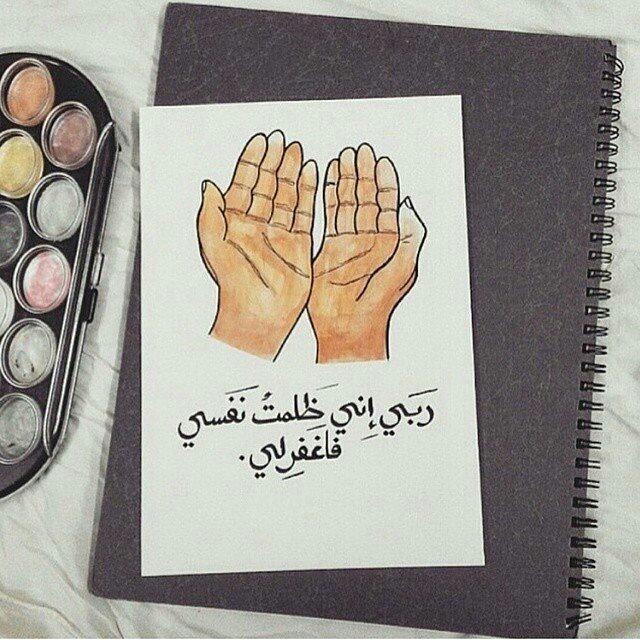 رَبَي إِنيِ ظلمتُ نَفَسي
فاغَفرِلي.